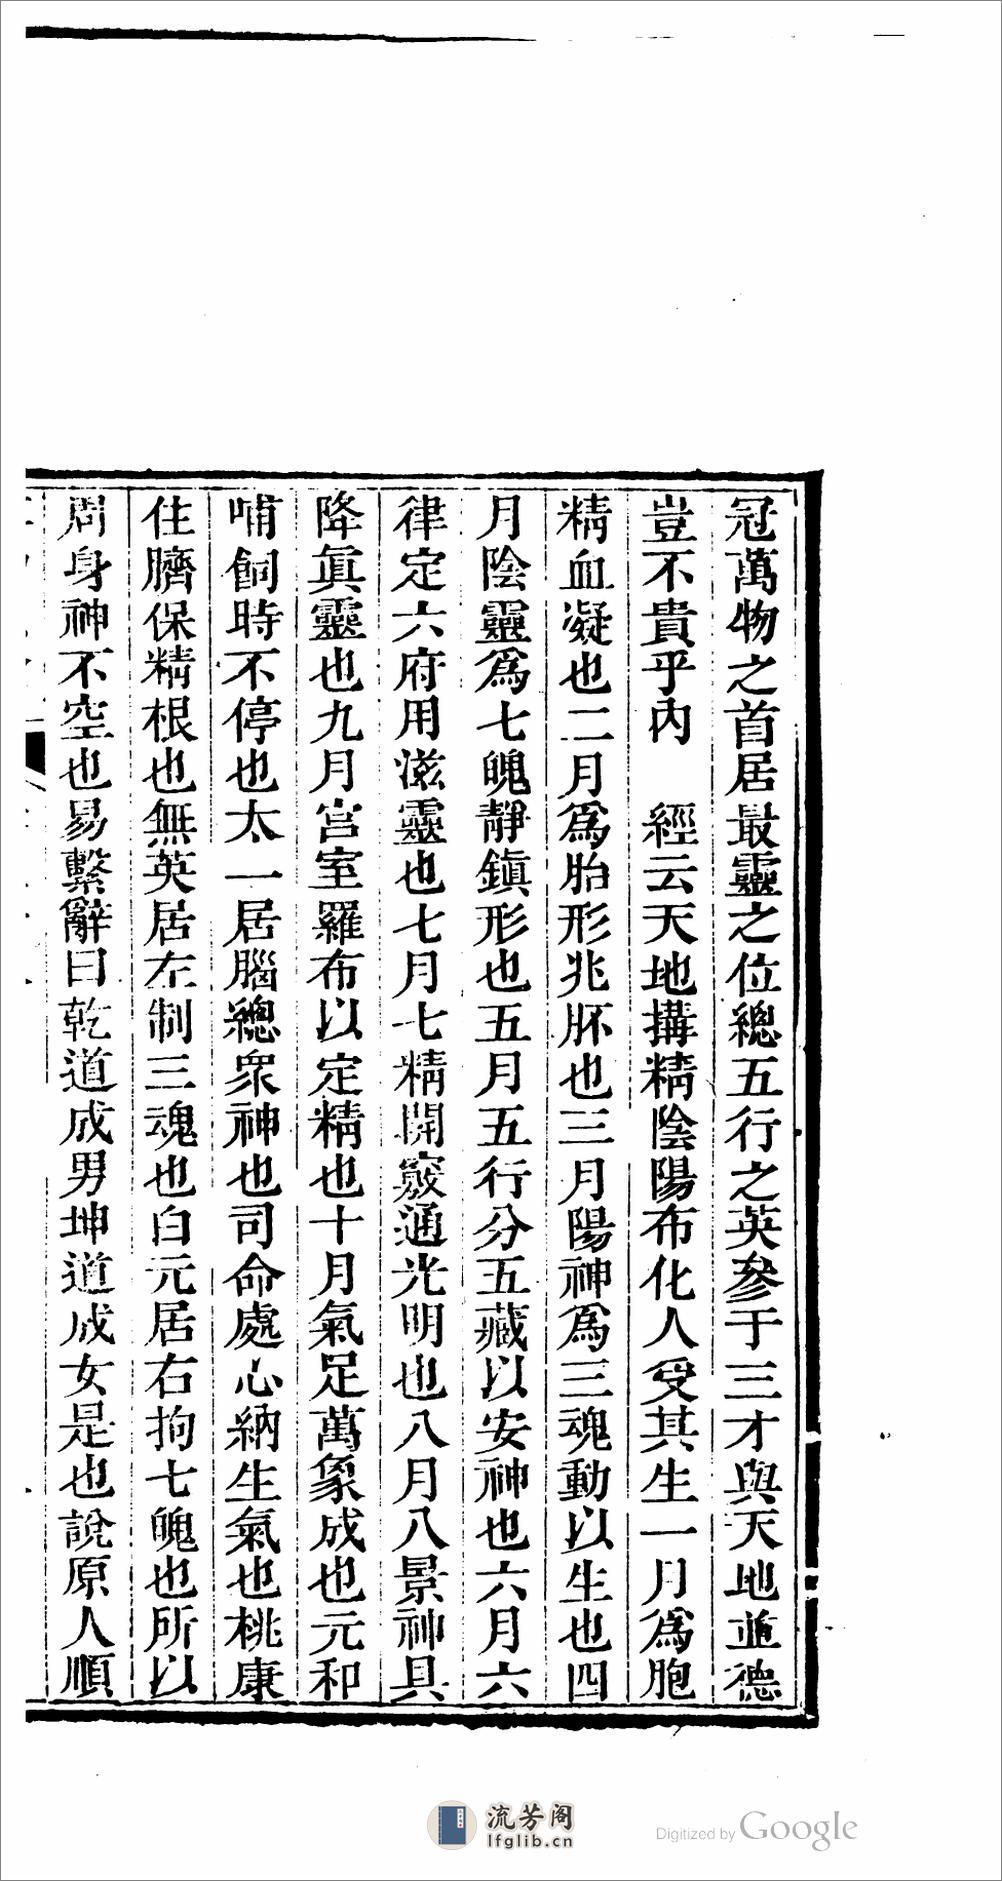 冠萬物之首居最靈之位總五行之英參于三才與天地並德
豈不貴乎內　經云天地搆精陰陽布化人受其生一月為胞
精血凝也二月為胎形兆胚也三月陽神為三魂動以生也四
月陰靈為七魄靜鎮形也五月五行分五藏以安神也六月六
律定六府用滋靈也七月七精開竅通光明也八月八景神具
降眞靈也九月宮室羅布以定精也十月氣足萬象成也元和
哺飼時不停也太一居腦總衆神也司命處心納生氣也桃康
住臍保精根也無英居左制三魂也白元居右拘七魄也所以
周身神不空也易繫辭曰乾道成男坤道成女是也說原人順
流芳阁
lfglib.cn
Digitized by Google